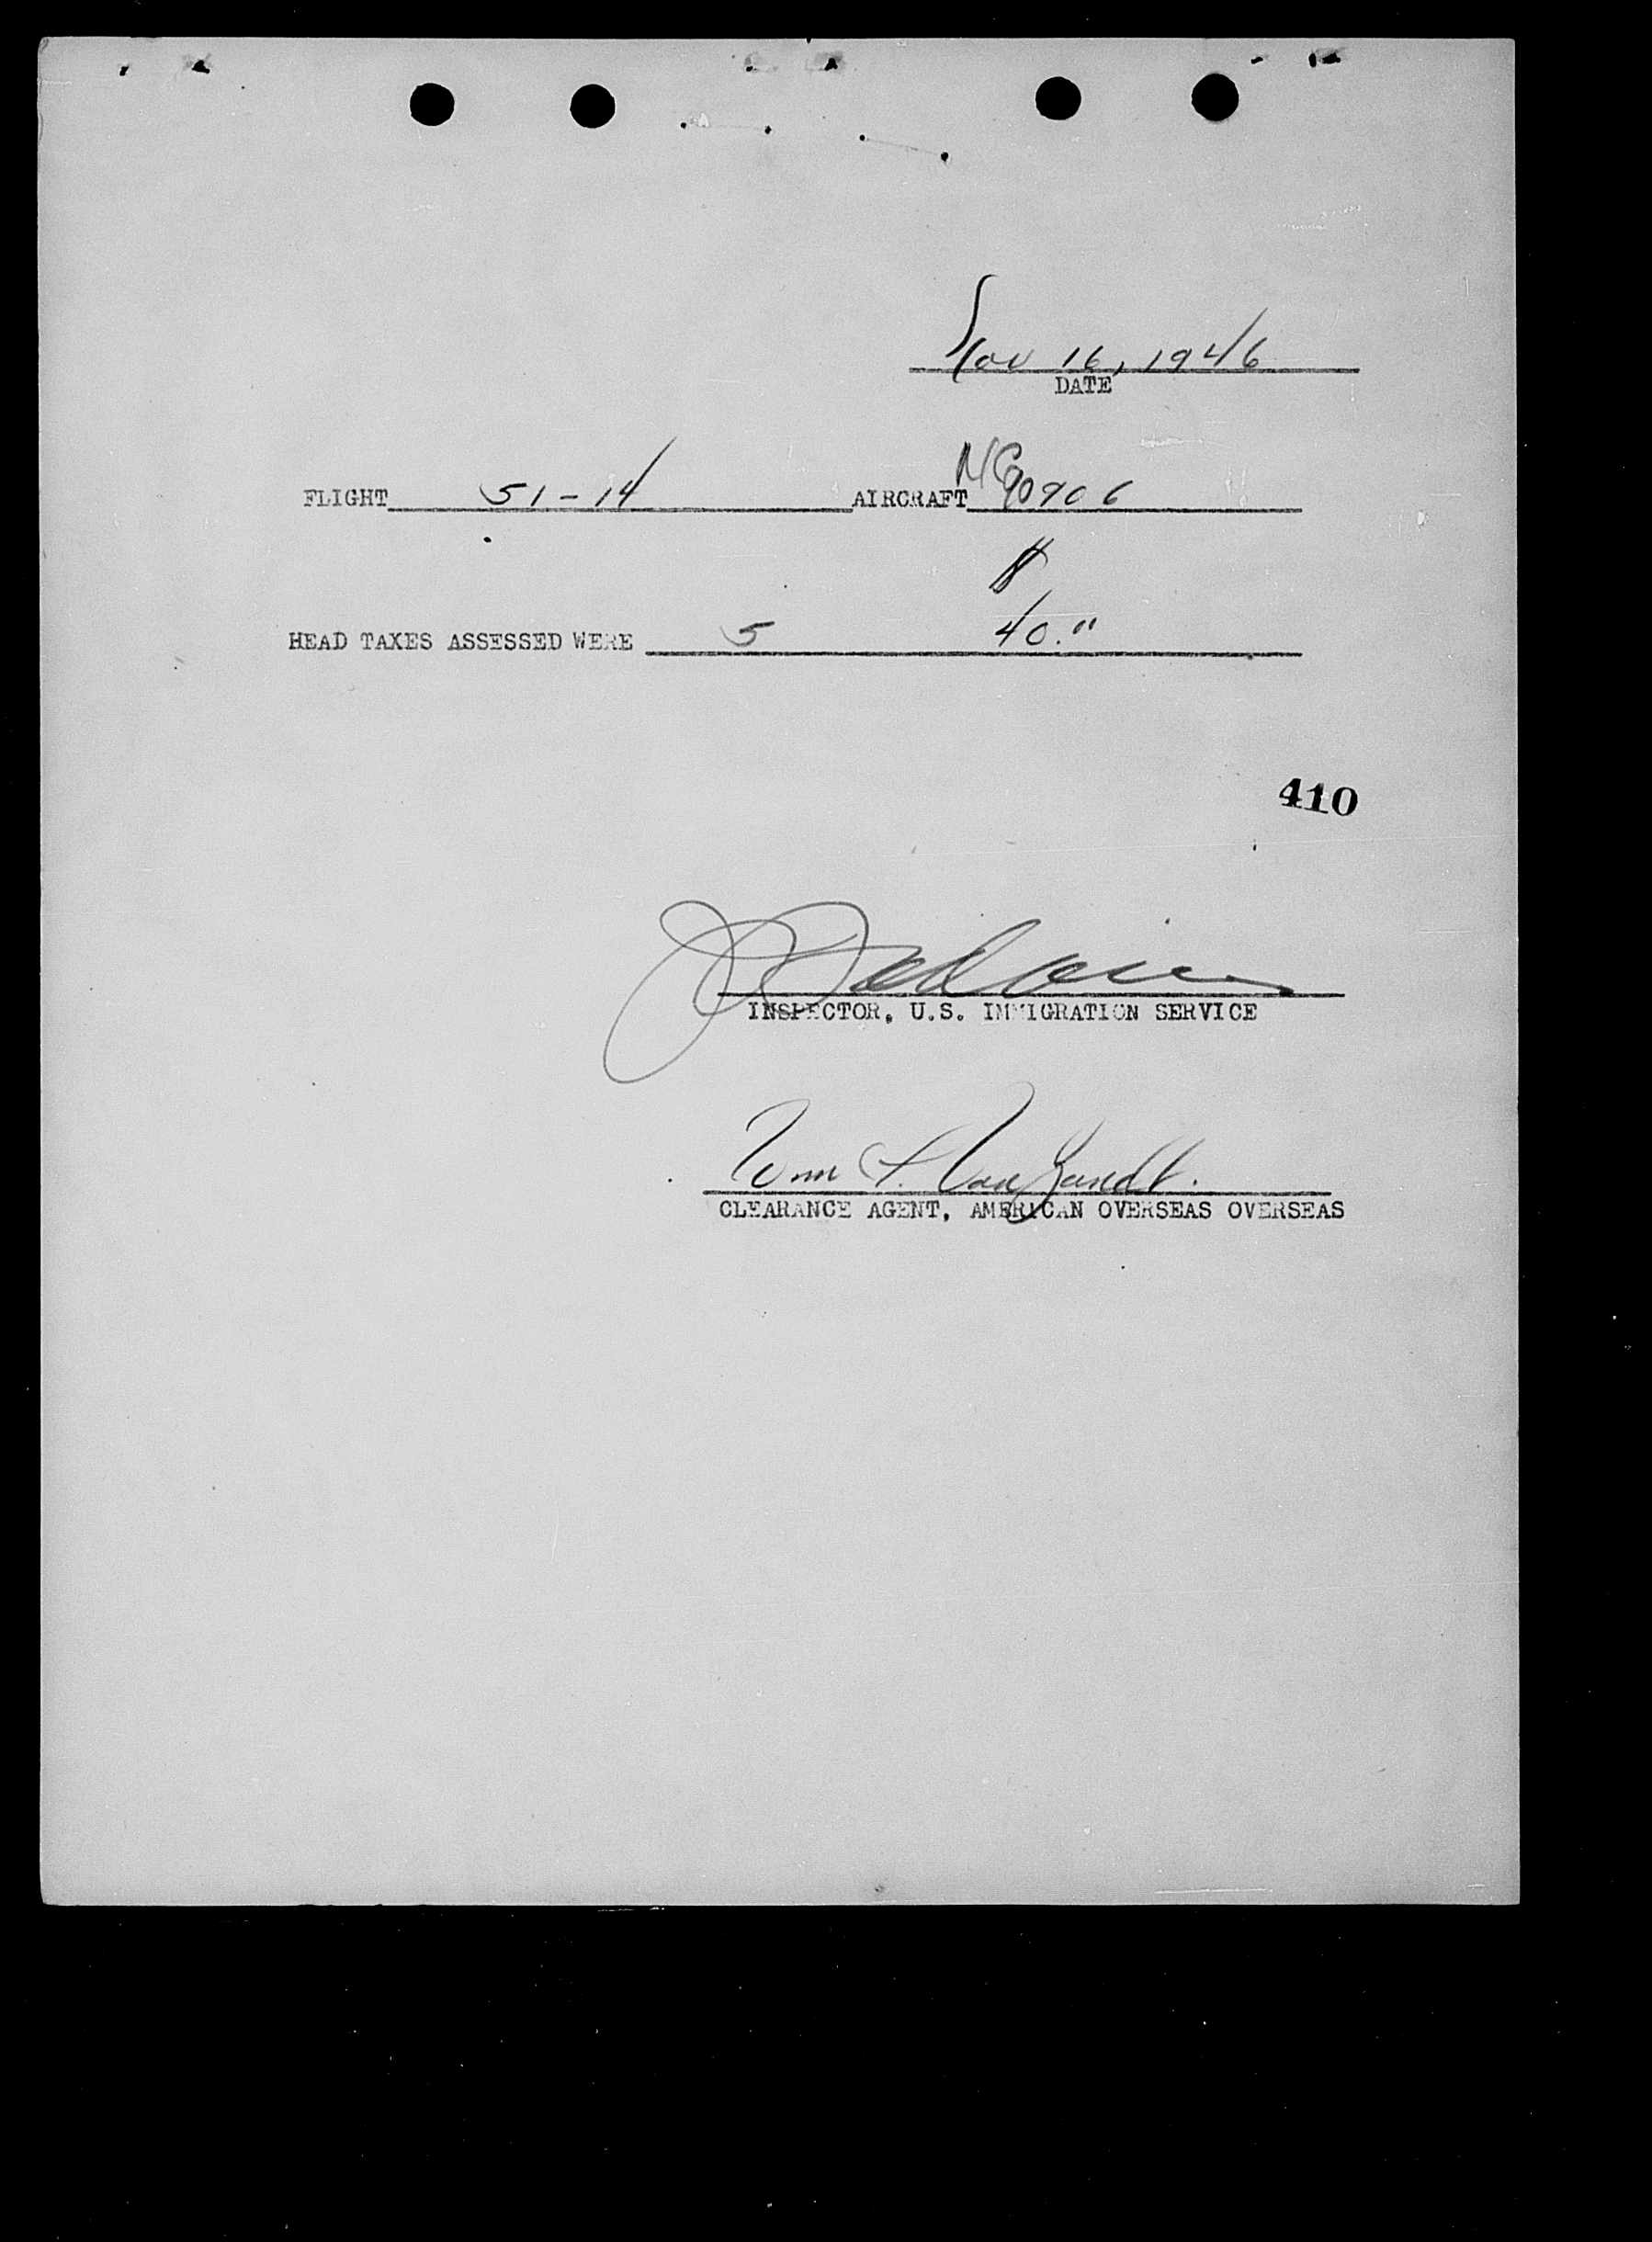 Nov 16, 1946
DATE
FLIGHT 51-14 AIRCRAFT NC90906
$
HEAD TAXES ASSESSED WERE 5 40.00
410
INSPECTOR, U.S. IMMIGRATION SERVICE
Wm F. Van Zandt.
CLEARANCE AGENT, AMERICAN OVERSEAS OVERSEAS